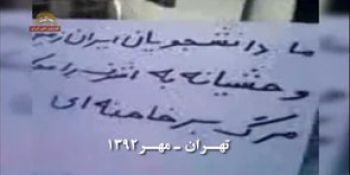 ما دانشجویان ایران
وحشیانه به اشرف را
مرگ بر خامنه ای
تهران - مهر ۱۳۹۲